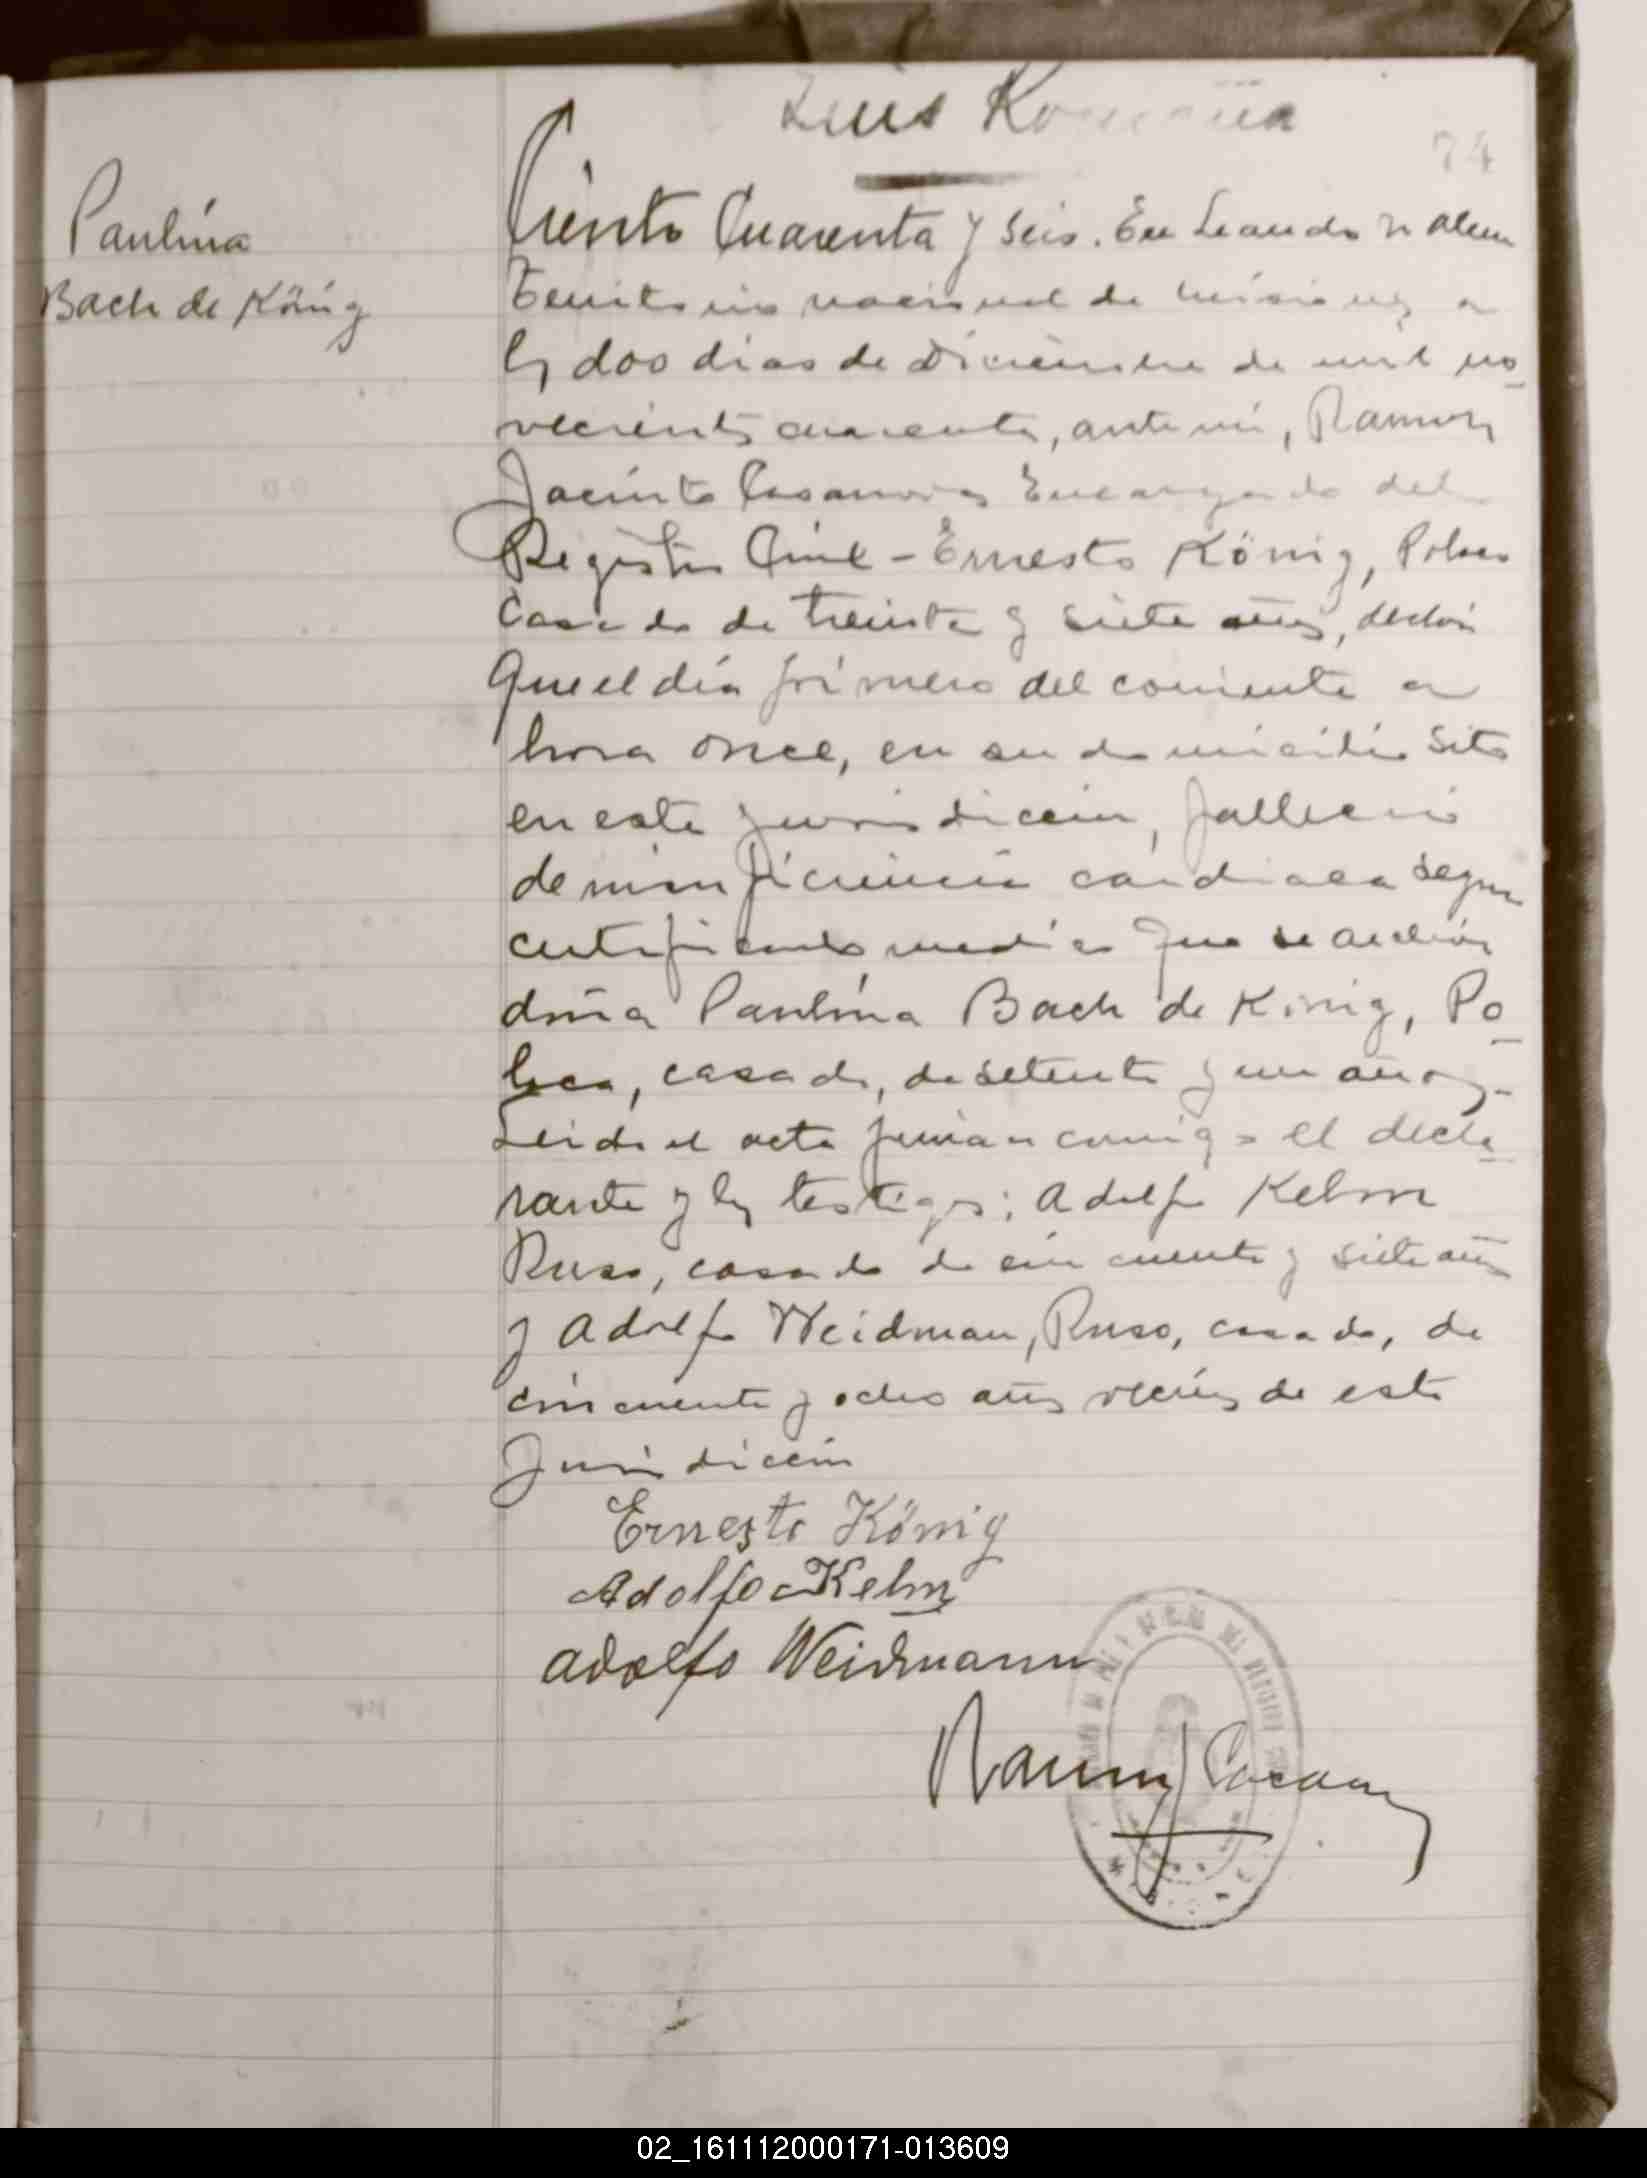 Luis Romaña
74
Paulina
Bach de König
Ciento Cuarenta y seis. En Leandro N Alem
Territorio nacional de Misiones a
los dos dias de Diciembre de mil no-
vecientos cuarenta, ante mi, Ramon
Jacinto Casanovas Encargado del
Registro Civil - Ernesto König, Polaco
casado de treinta y siete años, declaró
Que el día primero del corriente a
hora once, en su domicilio sito
en esta jurisdiccion, falleció
de insuficiencia cardiaca segun
certificado medico que se archiva
doña Paulina Bach de König, Po-
laca, casada, de setenta y un años.-
Leida el acta firman conmigo el decla-
rante y los testigos; Adolfo Kelm
Ruso, casado de cincuenta y siete años
y Adolfo Weidman, Ruso, casado, de
cincuenta y ocho años vecinos de esta
Jurisdiccion
Ernesto König
Adolfo Kelm
Adolfo Weidmann
Ramon J Casanovas
02_161112000171-013609